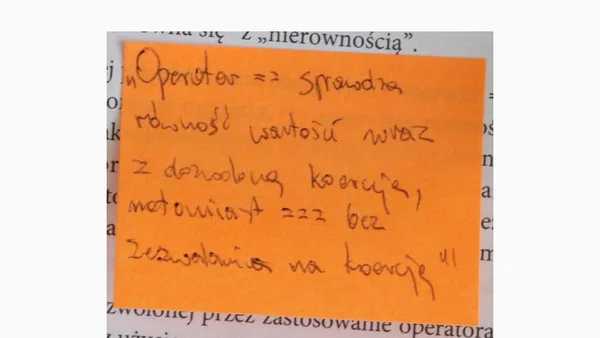 równa się" z „nierównością".
„Operator == sprawdza
równość wartości wraz
z dozwoloną koercją,
natomiast === bez
zezwalania na koercję"!
zwolonej przez zastosowanie operatora